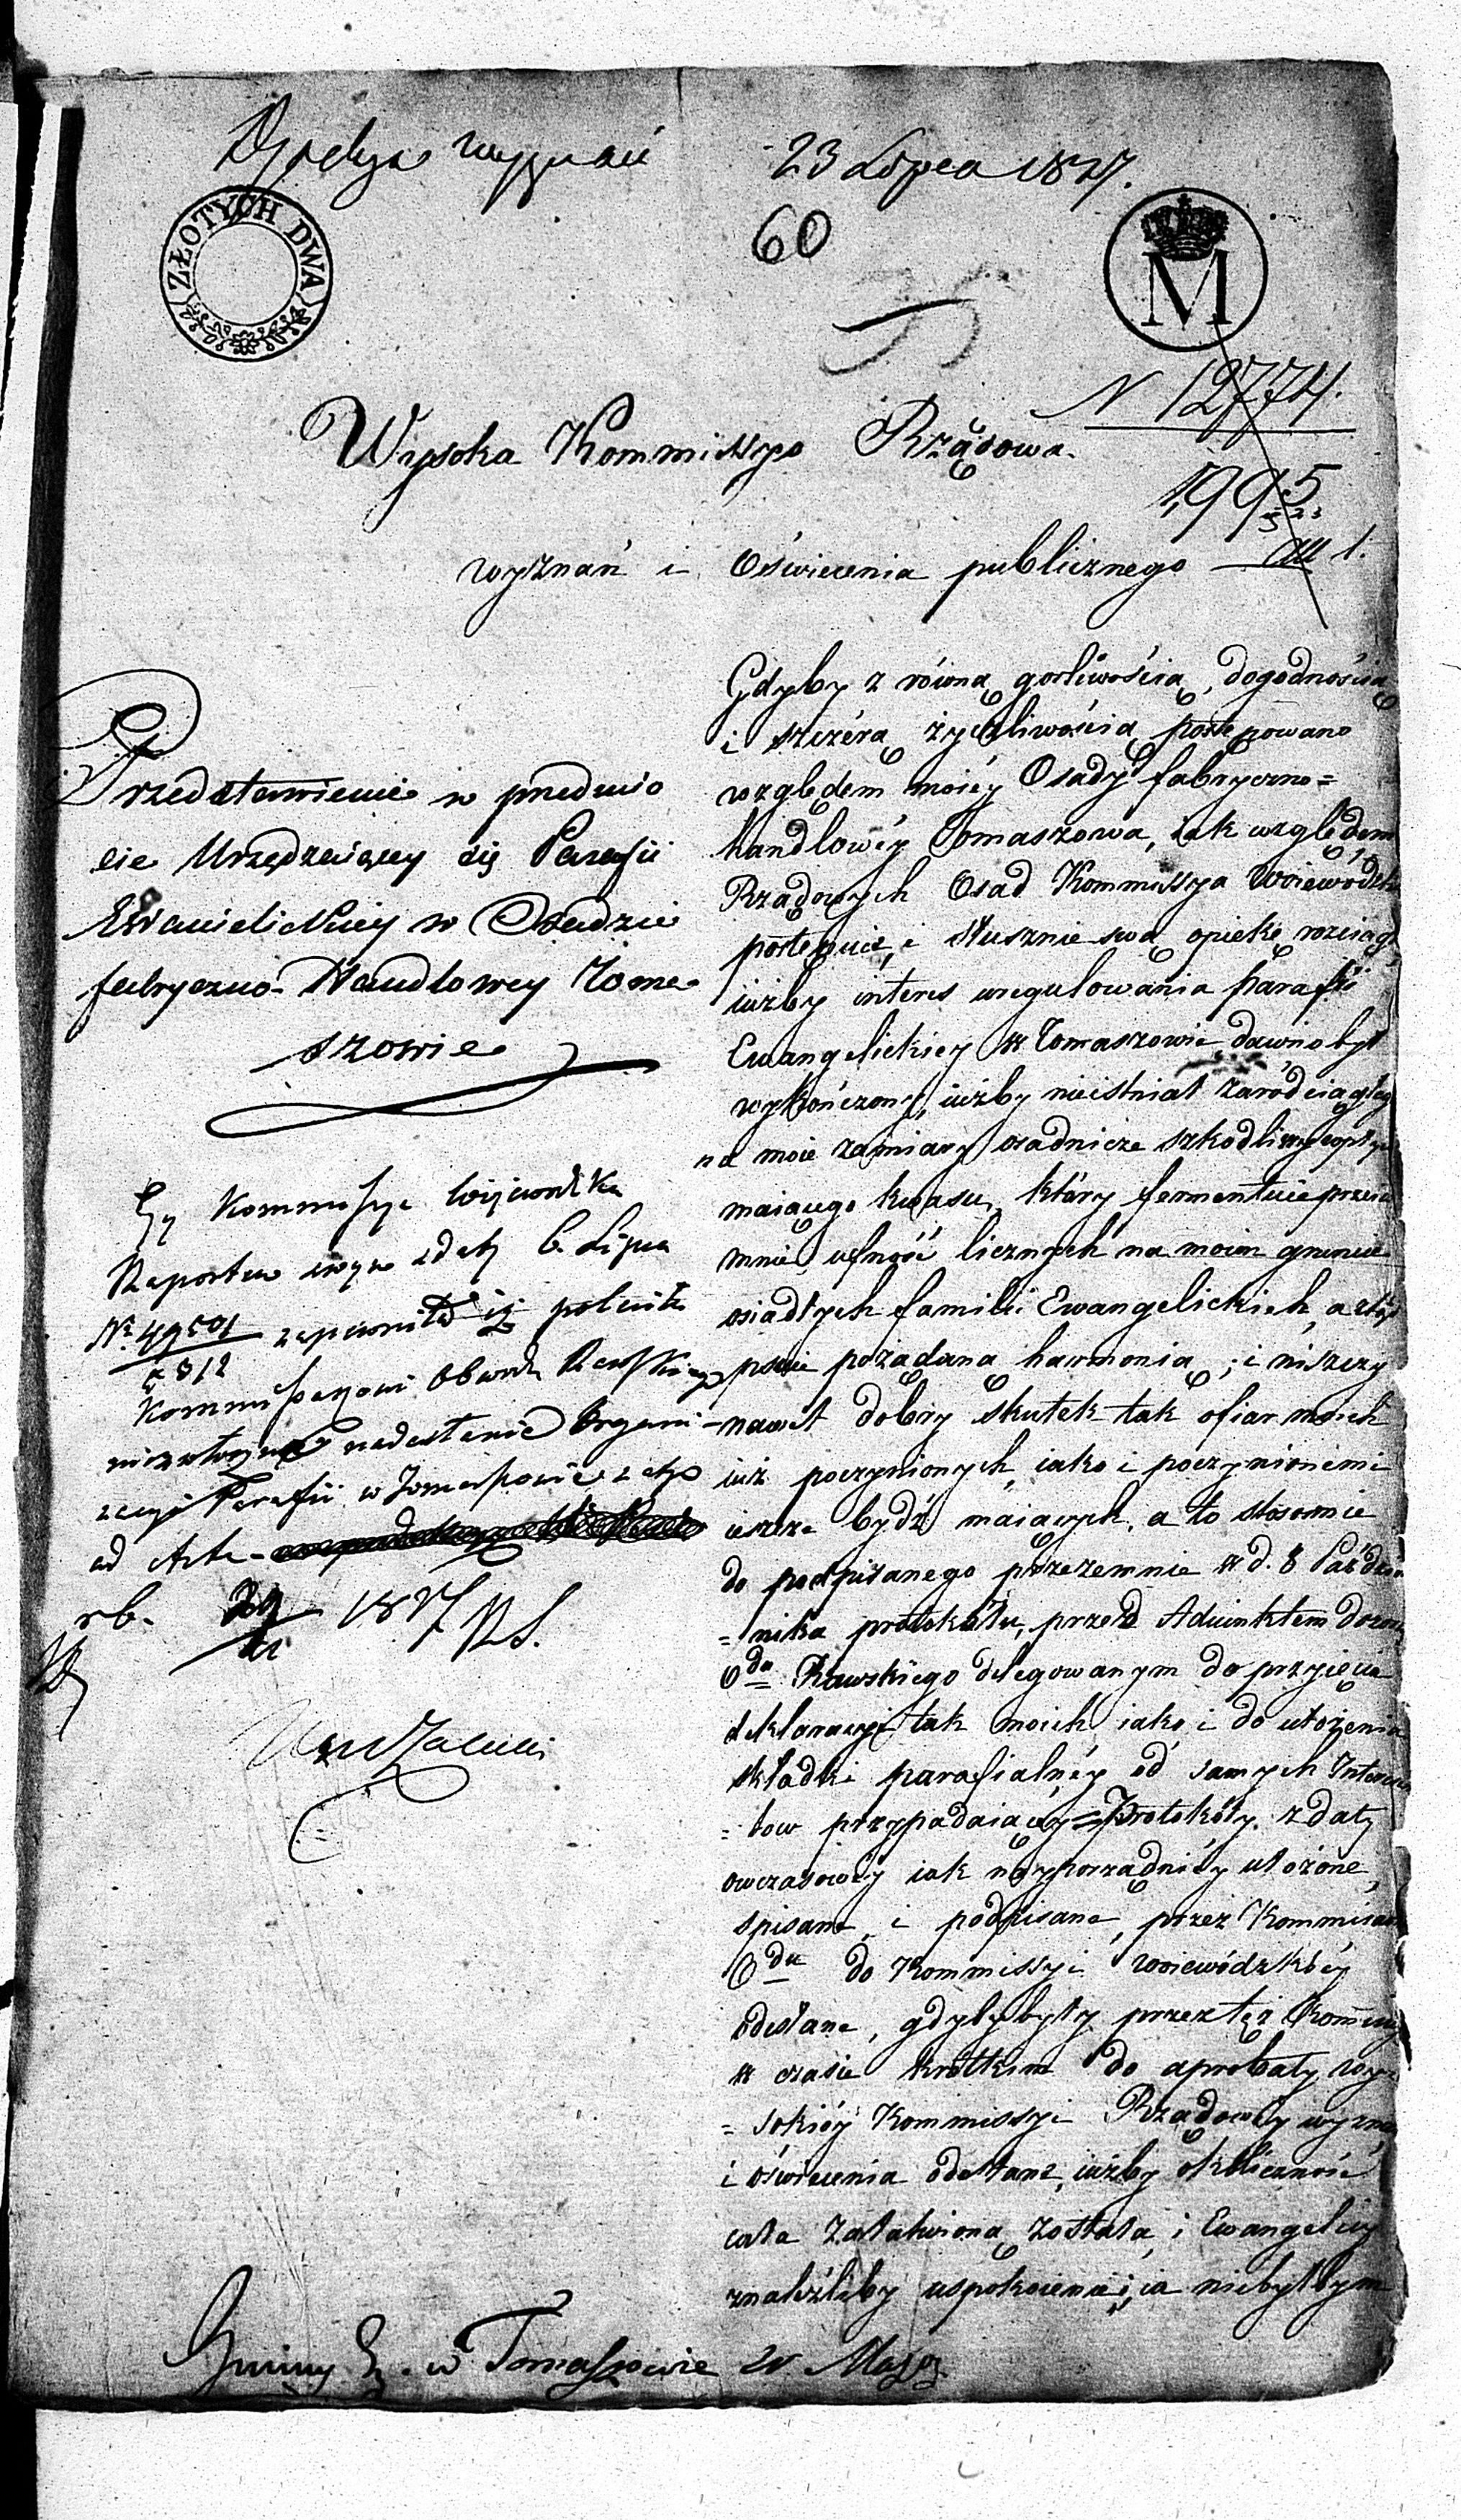 23 Lipca 1827.
60
ZŁOTYCH DWA
M
N 12774.
1995
Wysoka Kommissyo Rządowa
wyznań i Oświecenia publicznego
Przedstawienie w przedmio
cie Urządzaiącey się Parafii
Ewanielickiey w Osadzie
fabryczno-Handlowey Toma-
szowie
Kommissya Wojewódzka
Raportem swym z daty 6. Lipca
No 49501 zapewniła iż poleciła
5312
Kommissarzowi Obwodu Rawskiego
nadesłanie Organi-
zacyi Parafii w Tomaszowie z etc
ad Acta
rb. 1827
Gdyby z równą gorliwością, dogodnością
i szczérą życzliwością postępowano
względem moiéy Osady fabryczno=
handlowéy Tomaszowa, iak względem
Rządowych Osad Kommissya Woiewódzk
postępuie, i słusznie swą opiekę rozciąg
iużby interes uregulowania Parafii
Ewangelickiey w Tomaszowie dawno był
wykończony, iużby nieistniał zaród ciągłey
na moie zamiary osadnicze szkodliwy wpływ
maiącego kwasu, który fermentuie przeciw
mnie, ufność licznych na moim gruncie
osiadłych familii Ewangelickich, a
psuie pożądaną harmonią; i niszczy
nawet dobry skutek tak ofiar moich
iuż poczynionych, iako i poczynionemi
ieszcze bydź maiących, a to stosownie
do podpisanego przezemnie w d. 8 Paździer
=nika protokółu, przed Adiunktem dozor
Odu Rawskiego delegowanym do przyięcia
deklaracyi tak moich, iako i do ułożenia
składki parafialnéy od samych Interessen
=tow przypadaiącéy = Protokóły z daty
owczasowéy iak nayporządniéy ułożone,
spisane, i podpisane, przez Kommisarz
Odu do Kommissyi woiewódzkiéy
odesłane, gdyby były przez tęż Kommiss
w czasie krótkim do aprobaty wy=
=sokiéy Kommissyi Rządowéy wyznań
i oświecenia odesłane, iużby okoliczność
cała załatwioną została, i Ewangelicy
znaleźliby uspokoienie; ia niebyłbym
Gminy E. w Tomaszowie w Mazow.